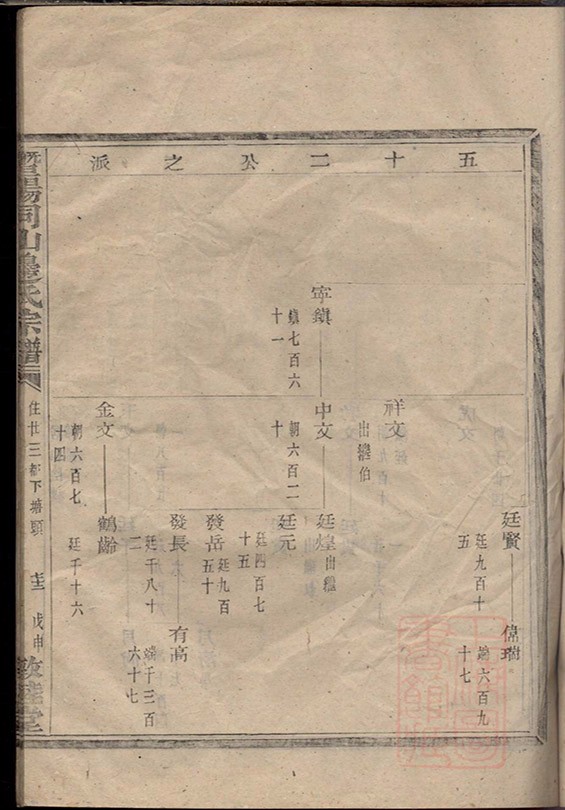 五十二公之派
廷賢 廷九百十五
偉瑞 端六百九十七
祥文 出繼伯
寧鎮 鎮七百六十一
中文 朝六百二十
廷煌 出繼
廷元 廷四百七十五
發岳 廷九百五十
發長 廷千八十二
有高 端千三百六十七
金文 朝六百七十四
鶴齡 廷千十六
暨陽同山邊氏宗譜
住廿三都下塘頭
戊申
敦睦堂